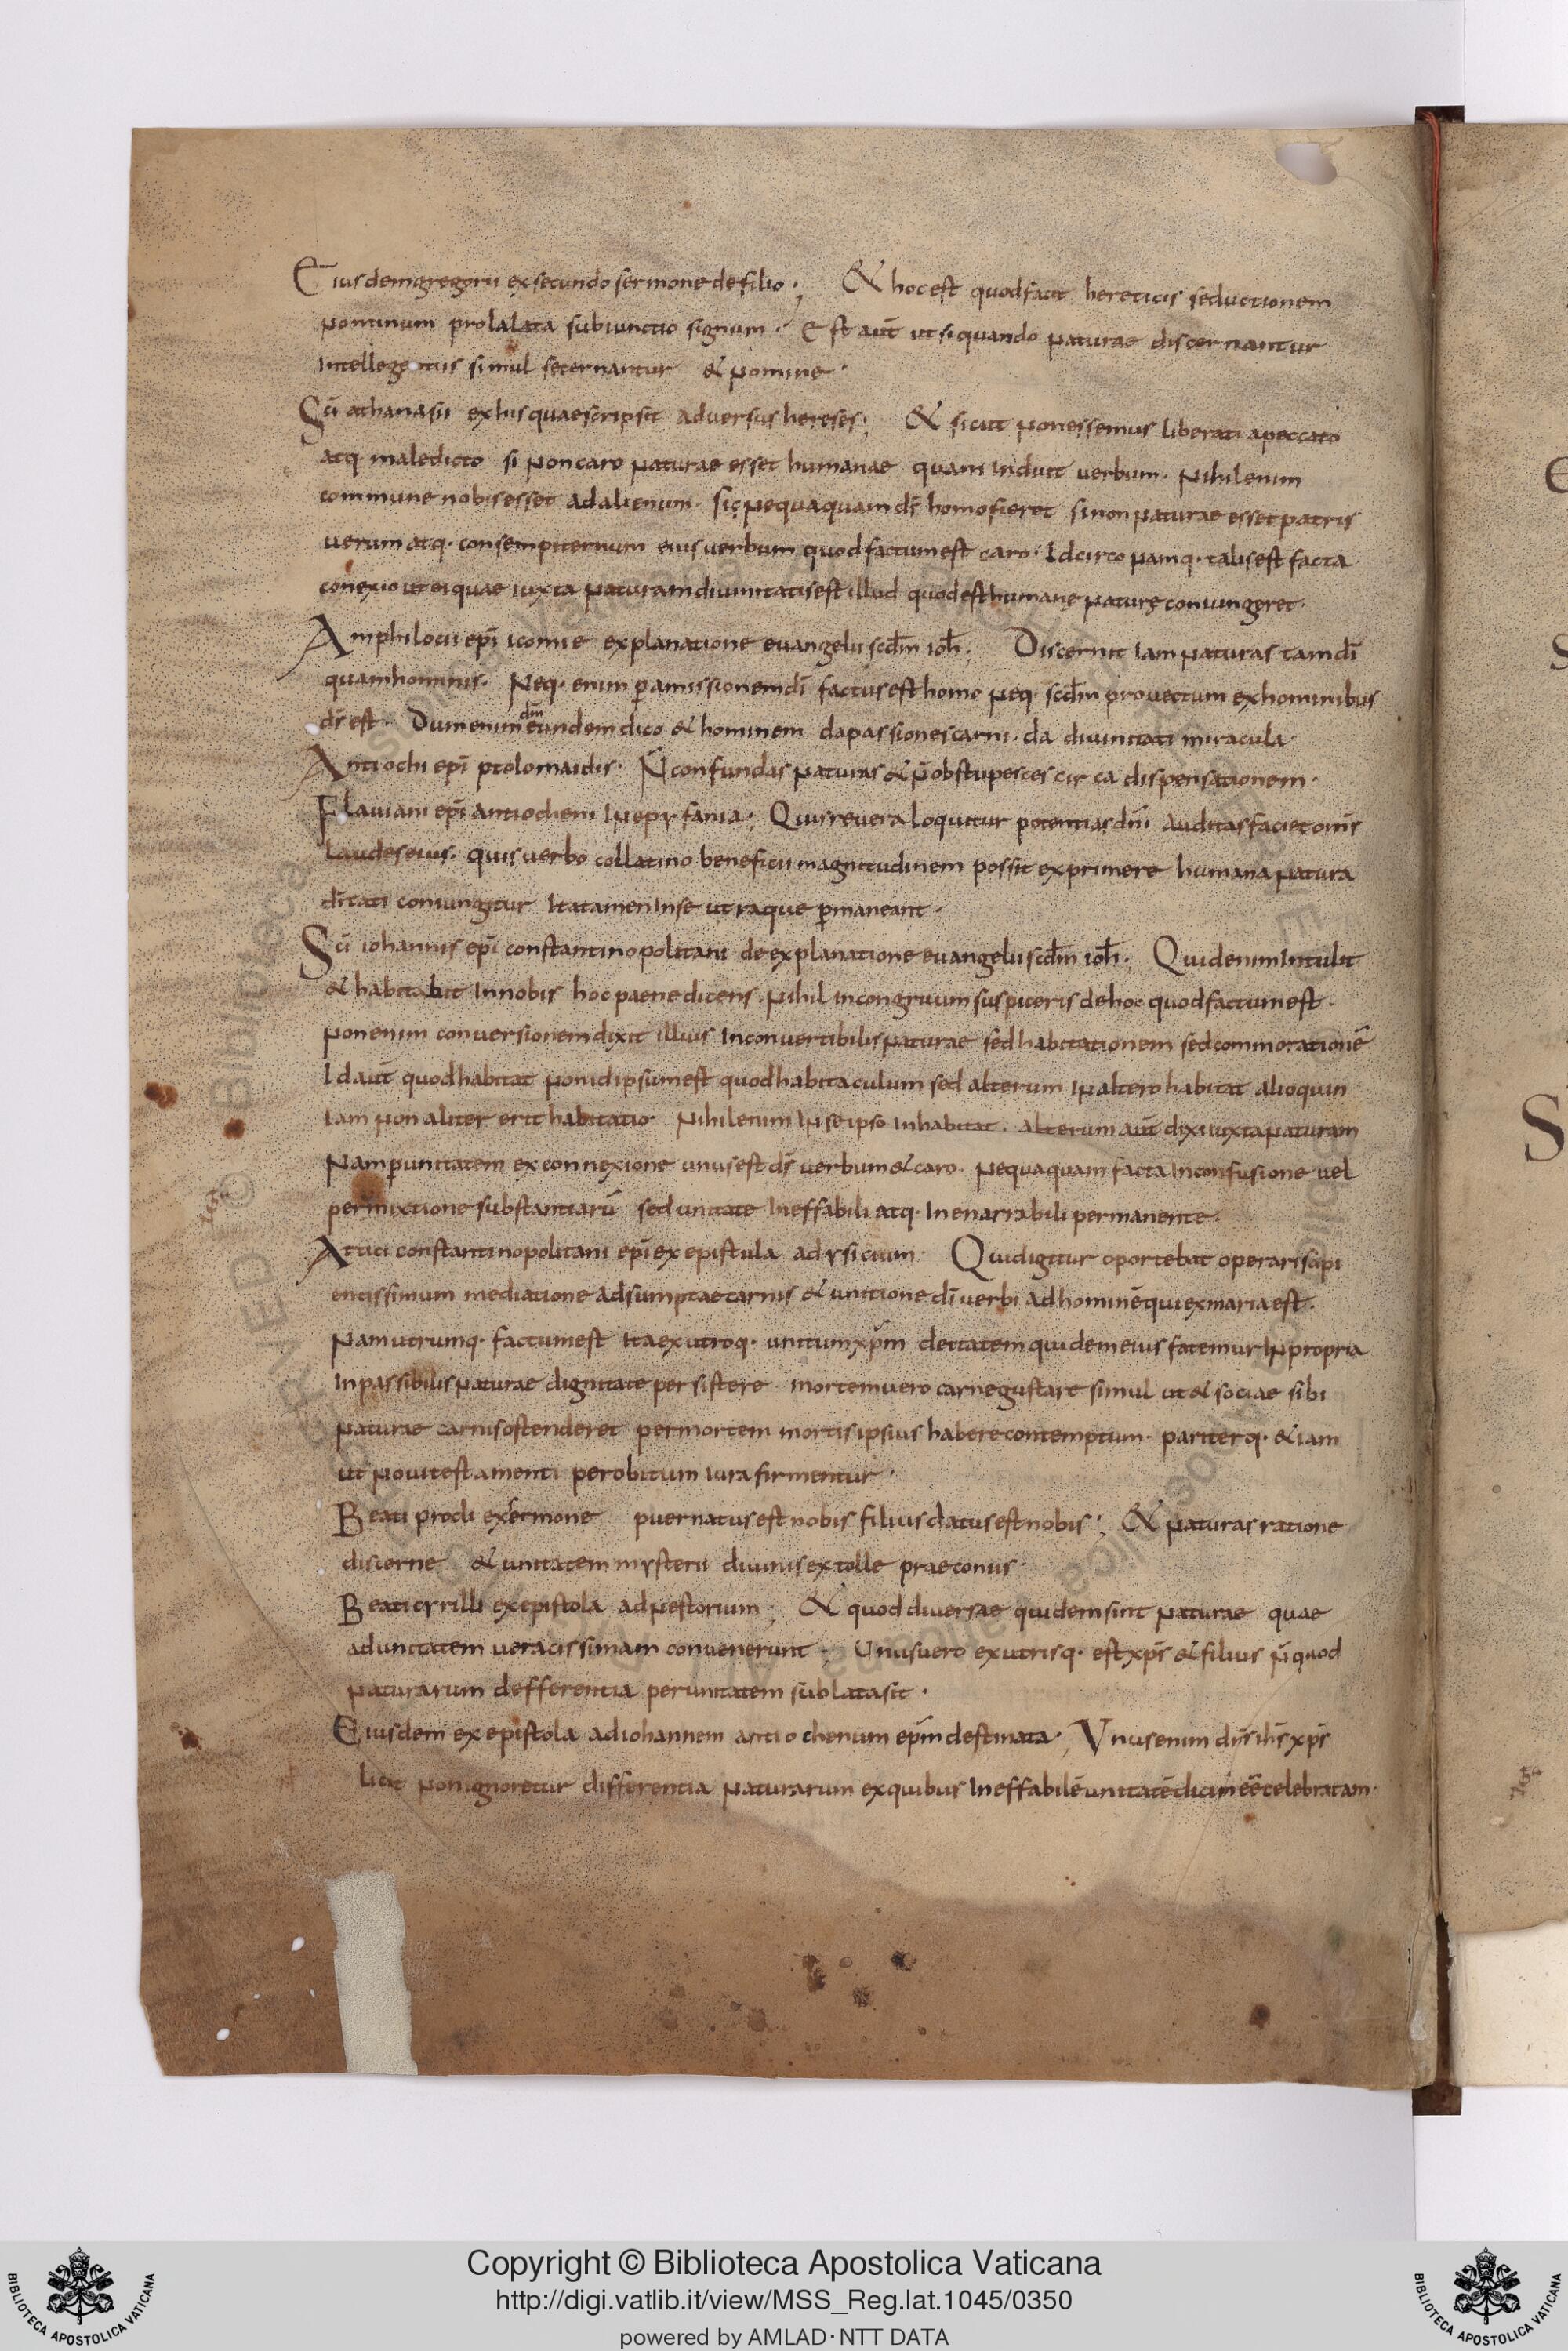 Eiusdem gregorii ex secundo sermone de filio·; & hoc est quod facit hereticis seductionem
nominum prolalata subiunctio signum·' Est aūt ut si quando naturae discernantur
intellegentiis simul secernantur & nomine·
Sc̄i athanasii ex his quae scripsit adversus hereses·; & sicut non essemus liberati a peccato
atq· maledicto si non caro naturae esset humanae quam induit verbum· Nihil enim
commune nobis esset ad alienum· Sic nequaquam ds̄ homo fieret si non naturae esset patris
uerum atq· consempiternum eius verbum quod factum est caro· Idcirco namq· talis est facta
conexio ut ei quae iuxta naturam divinitatis est illud quod est humanę naturę coniungeret·
Amphilocii ep̄i iconię explanatione euangelii scd̄m ioh̄·; Discernit iam naturas tam dī
quam hominis· Neq· enim p̄ amissionem dī factus est homo neq· scd̄m provectum ex hominibus
ds̄ est· Dum enim dm̄ eundem dico & hominem da passiones carni· da divinitati miracula·
Antiochi ep̄i ptolomaidis· N̄ confundas naturas & n̄ obstupesces circa dispensationem·
Flaviani ep̄i antiocheni in epyfania·; Quis revera loquitur potentias dn̄i auditas faciet om̄s
laudes eius· quis verbo collatino beneficii magnitudinem possit exprimere humana natura
dītati coniungitur Ita tamen in se utraque p̄maneant·
Sc̄i iohannis ep̄i constantinopolitani de explanatione euangelii scd̄m ioh̄·; Quid enim intulit
& habitabit in nobis hoc paene dicens· Nihil incongruum suspiceris de hoc quod factum est·
non enim conversionem dixit illius inconvertibilis naturae sed habitationem sed commorationē
Id aūt quod habitat non id ipsum est quod habitaculum sed alterum in altero habitat alioquin
Iam non aliter erit habitatio· Nihil enim in se ipso inhabitat· alterum aūt dixi iuxta naturam
Nam p̄ unitatem ex connexione unus est ds̄ verbum & caro· Nequaquam facta in confusione vel
permixtione substantiarū sed unitate ineffabili atq· inenarrabili permanente·
Attici constantinopolitani ep̄i ex epistula ad ysicium· Quid igitur oportebat operari sapi
entissimum mediatione adsumptae carnis & unitione dī verbi ad hominē qui ex maria est·
Nam utrumq· factum est Ita ex utroq· unitum xp̄m deitatem quidem eius fatemur in propria
inpassibilis naturae dignitate persistere mortem vero carne gustare simul ut & sociae sibi
naturae carnis ostenderet per mortem mortis ipsius habere contemptum· pariterq· & iam
ut novi testamenti per obitum iura firmentur·
Beati procli ex sermone puer natus est nobis filius datus est nobis·; & naturas ratione
discerne & unitatem mysterii divinis extolle praeconiis·
Beati cyrilli ex epistola ad nestorium·; & quod diversae quidem sint naturae quae
ad unitatem veracissimam convenerunt·; Unus vero ex utrisq· est xp̄s & filius n̄ quod
naturarum defferentia per unitatem sublata sit·
Eiusdem ex epistola ad iohannem antiochenum ep̄m destinata·; Vnus enim dn̄s ih̄s xp̄s
licet non ignoretur differentia naturarum ex quibus ineffabilē unitatē dicim̄ eē celebratam·
Copyright © Biblioteca Apostolica Vaticana
http://digi.vatlib.it/view/MSS_Reg.lat.1045/0350
powered by AMLAD·NTT DATA
BIBLIOTECA APOSTOLICA VATICANA
BIBLIOTECA APOSTOLICA VATICANA